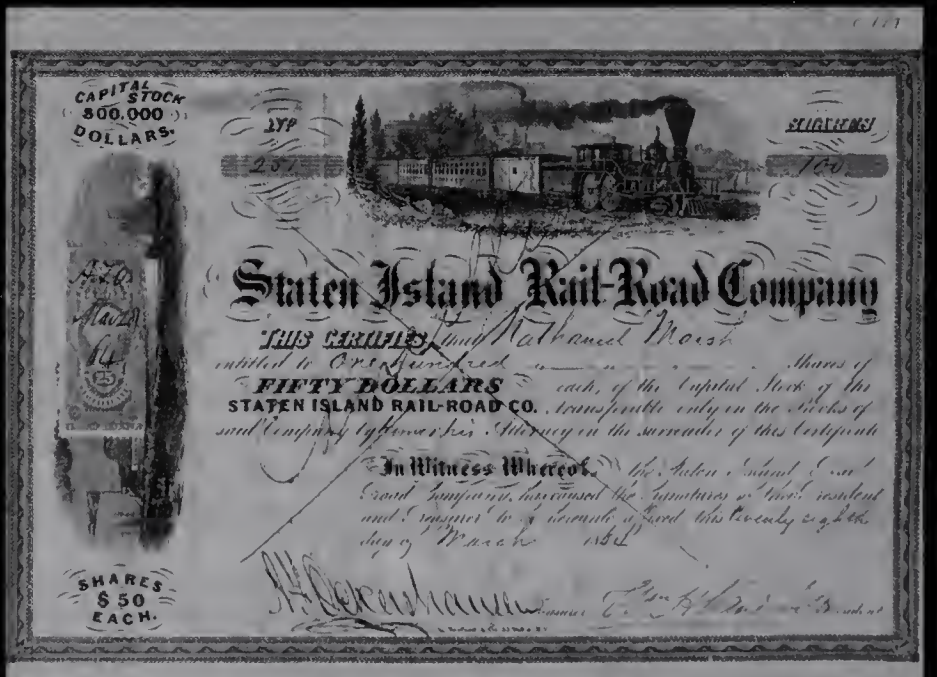 CAPITAL
STOCK
800,000
DOLLARS.
No
257
SHARES
100
Staten Island Rail-Road Company
THIS CERTIFIES that Nathaniel Marsh
entitled to One Hundred Shares of
FIFTY DOLLARS each, of the Capital Stock of the
STATEN ISLAND RAIL-ROAD CO. transferable only in the Books of
said Company by him or his Attorney on the surrender of this Certificate
In Witness Whereof, the Staten Island Rail
Road Company, has caused the signatures of their President
and Treasurer to be hereunto affixed this twenty eighth
day of March 1864
Mar 28
64
25
SHARES
$50
EACH.
Treasurer
President